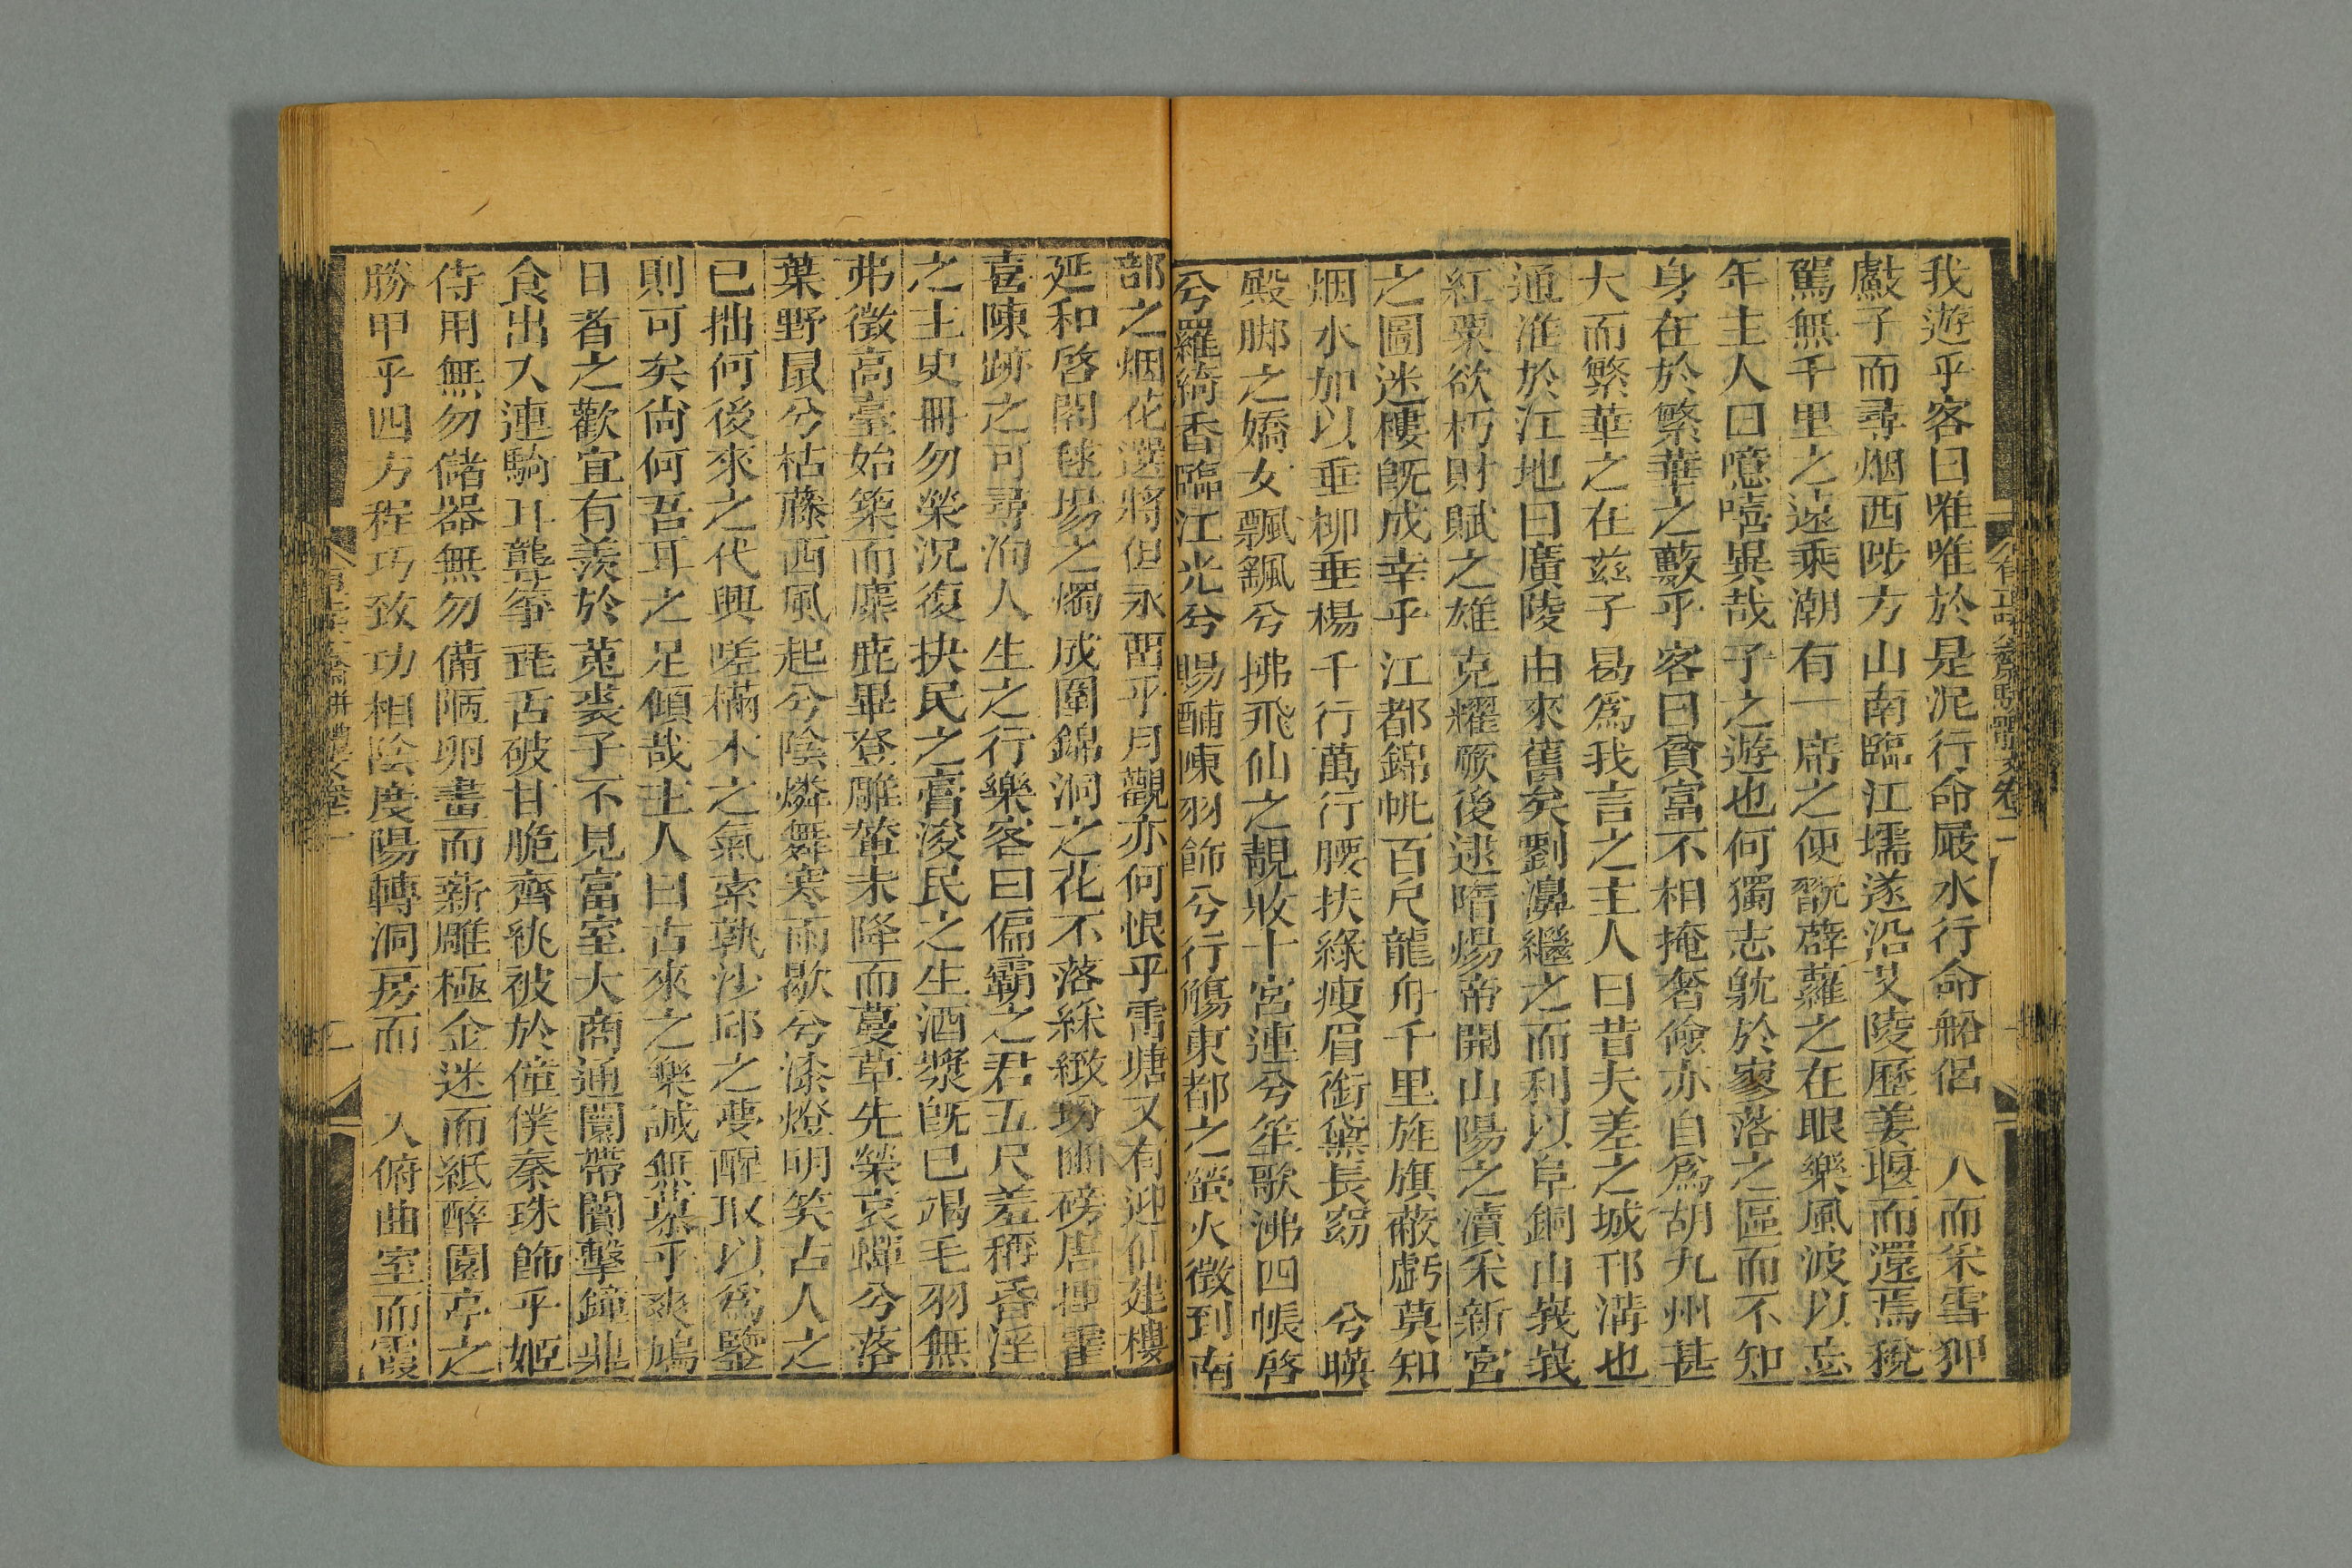 我遊乎客曰唯唯於是泥行命屐水行命船侶 八而采雪狎
鼓子而尋烟西陟方山南臨江壖遂沿艾陵歷姜堰而還焉稅
駕無千里之遠乘潮有一席之便翫薜蘿之在眼樂風波以忘
年主人曰噫嘻異哉子之遊也何獨志躭於寥落之區而不知
身在於繁華之藪乎客曰貧富不相掩奢儉亦自爲胡九州甚
大而繁華之在兹子曷爲我言之主人曰昔夫差之城邗溝也
通淮於江地曰廣陵由來舊矣劉濞繼之而利以阜銅山峩峩
紅粟欲朽財賦之雄克耀厥後逮隋煬帝開山陽之瀆釆新宮
之圖迷樓旣成幸乎江都錦帆百尺龍舟千里旌旗蔽虧莫知
烟水加以垂柳垂楊千行萬行腰扶綠瘦眉銜黛長窈 兮暎
殿脚之嬌女飄颻兮拂飛仙之靚妝十宮連兮笙歌沸四帳啓
兮羅綺香臨江光兮賜酺陳羽飾兮行觴東都之螢火徵到南
部之烟花選將但永 乎月觀亦何恨乎雷塘又有迎仙建樓
延和啓閣毬場之燭成圍錦洞之花不落綵緻 幽磅唐 霍
喜陳跡之可尋洵人生之行樂客曰偏霸之君五尺羞稱昏淫
之主史冊勿榮況復抉民之膏浚民之生酒漿旣巳竭毛羽無
弗徵高臺始築而麋鹿畢登雕輦未降而蔓草先榮哀蟬兮落
葉野鼠兮枯藤西風起兮陰燐舞寒雨歇兮漆燈明笑古人之
已拙何後來之代興嗟槁木之氣索孰沙邱之夢醒取以爲鑒
則可矣尙何吾耳之足傾哉主人曰古來之樂誠無慕乎爽鳩
日者之歡宜有羨於菟裘子不見富室大商通闤帶闠擊鐘鼎
食出入連騎耳聾箏琵舌破甘脆齊紈被於僮僕秦珠飾乎姬
侍用無勿儲器無勿備陋卵畫而新雕極金迷而紙醉園亭之
勝甲乎四方程巧致功相陰度陽轉洞房而 入俯曲室而霞